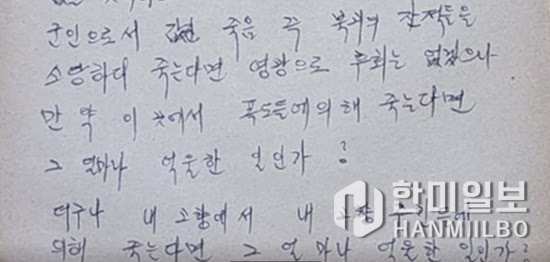 군인으로서 값진 죽음 즉 북괴의 잔적들을
소탕하다 죽는다면 영광으로 후회는 없겠으나
만약 이 곳에서 폭도들에 의해 죽는다면
그 얼마나 억울한 일인가?
더구나 내 고향에서 내 고향
의해 죽는다면 그 얼마나 억울한 일인가?
한미일보
HANMIILBO